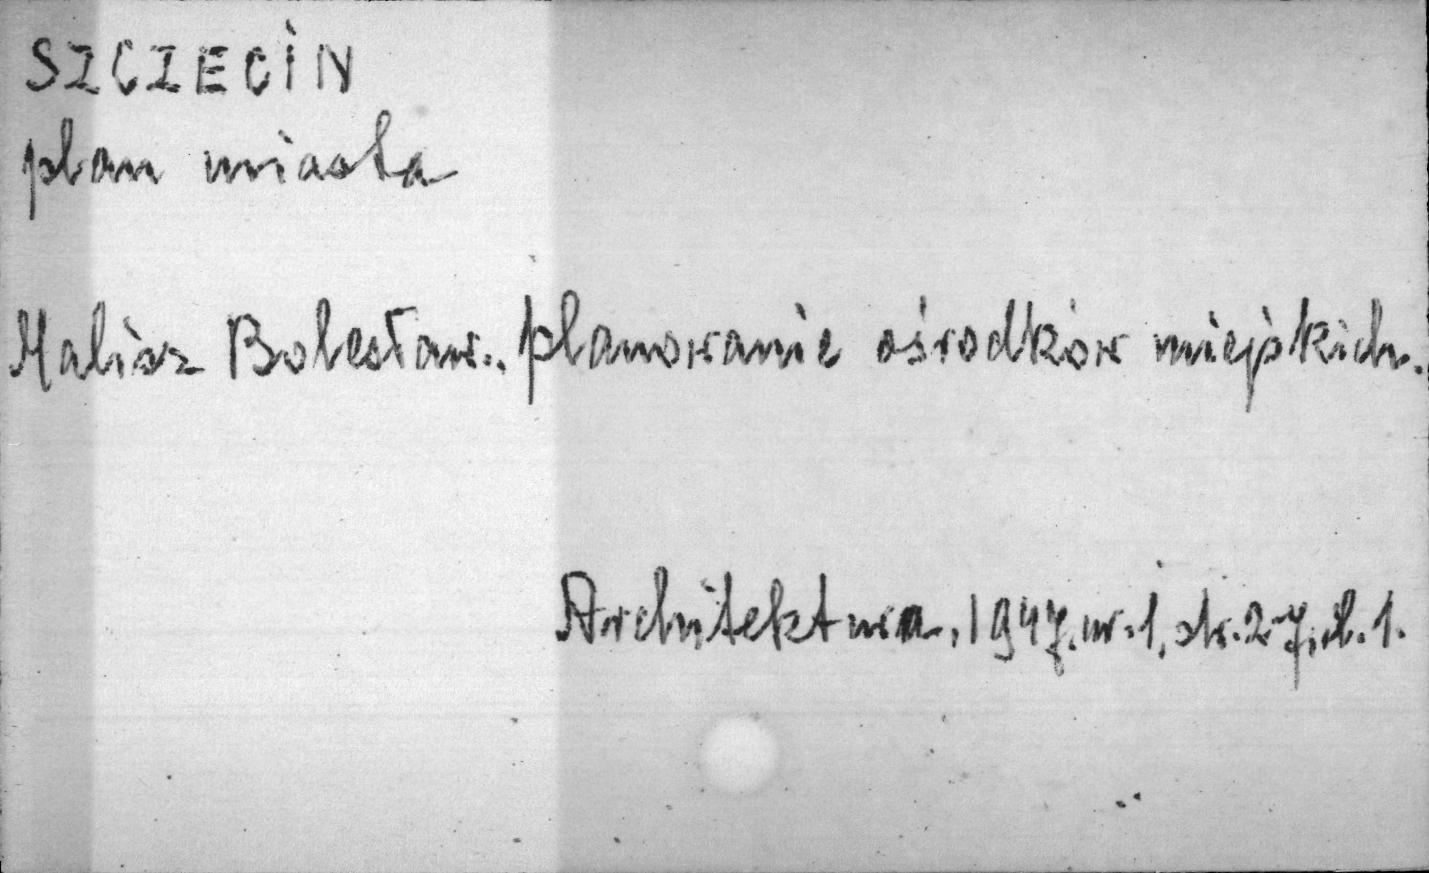 SZCZECIN
plan miasta
Malisz Bolesław., Planowanie ośrodków miejskich.
Architektura, 1947. nr. 1, str. 2-7, il. 1.